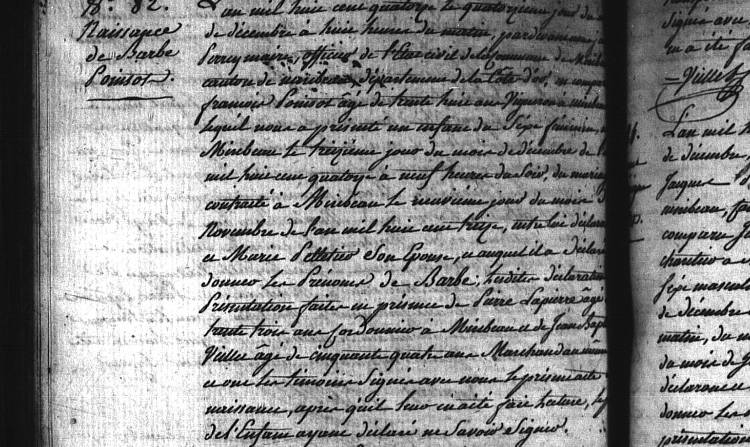 N.° 82.
Naissance
de Barbe
Poinsot.
L'an mil huit cent quatorze le quatorzieme jour du
de décembre à huit heures du matin, pardevant
Perrey maire, officier de l'Etat civil de la Commune de
canton de mirebeau, département de la Côte d'or, est
françois Poinsot âgé de trente huit ans Vigneron à
lequel nous a présenté un enfant du Sexe féminin,
Mirebeau le treizième jour du mois de décembre de
mil huit cent quatorze à neuf heures du Soir, du
contracté à Mirebeau le neuvième jour du mois
Novembre de l'an mil huit cent treize, entre lui
et Marie Pelletier Son Epouse, et auquel il a déclaré
donner les Prénoms de Barbe; lesdites déclaration
Présentation faites en présence de Pierre Lapierre âgé
trente trois ans Cordonnier à Mirebeau et de Jean
Villet âgé de cinquante quatre ans Marchand au
et ont les témoins Signé avec nous le présent acte
naissance, après qu'il leur en a été fait lecture, le
de l'Enfant ayant déclaré ne Savoir Signer.
Signé avec
en a été f
Villet
L'an mil
de décembre
Jaques
mirebeau,
comparu
Sexe mascul
de décembre
matin, du
du mois de
déclarant
donner les
présentation